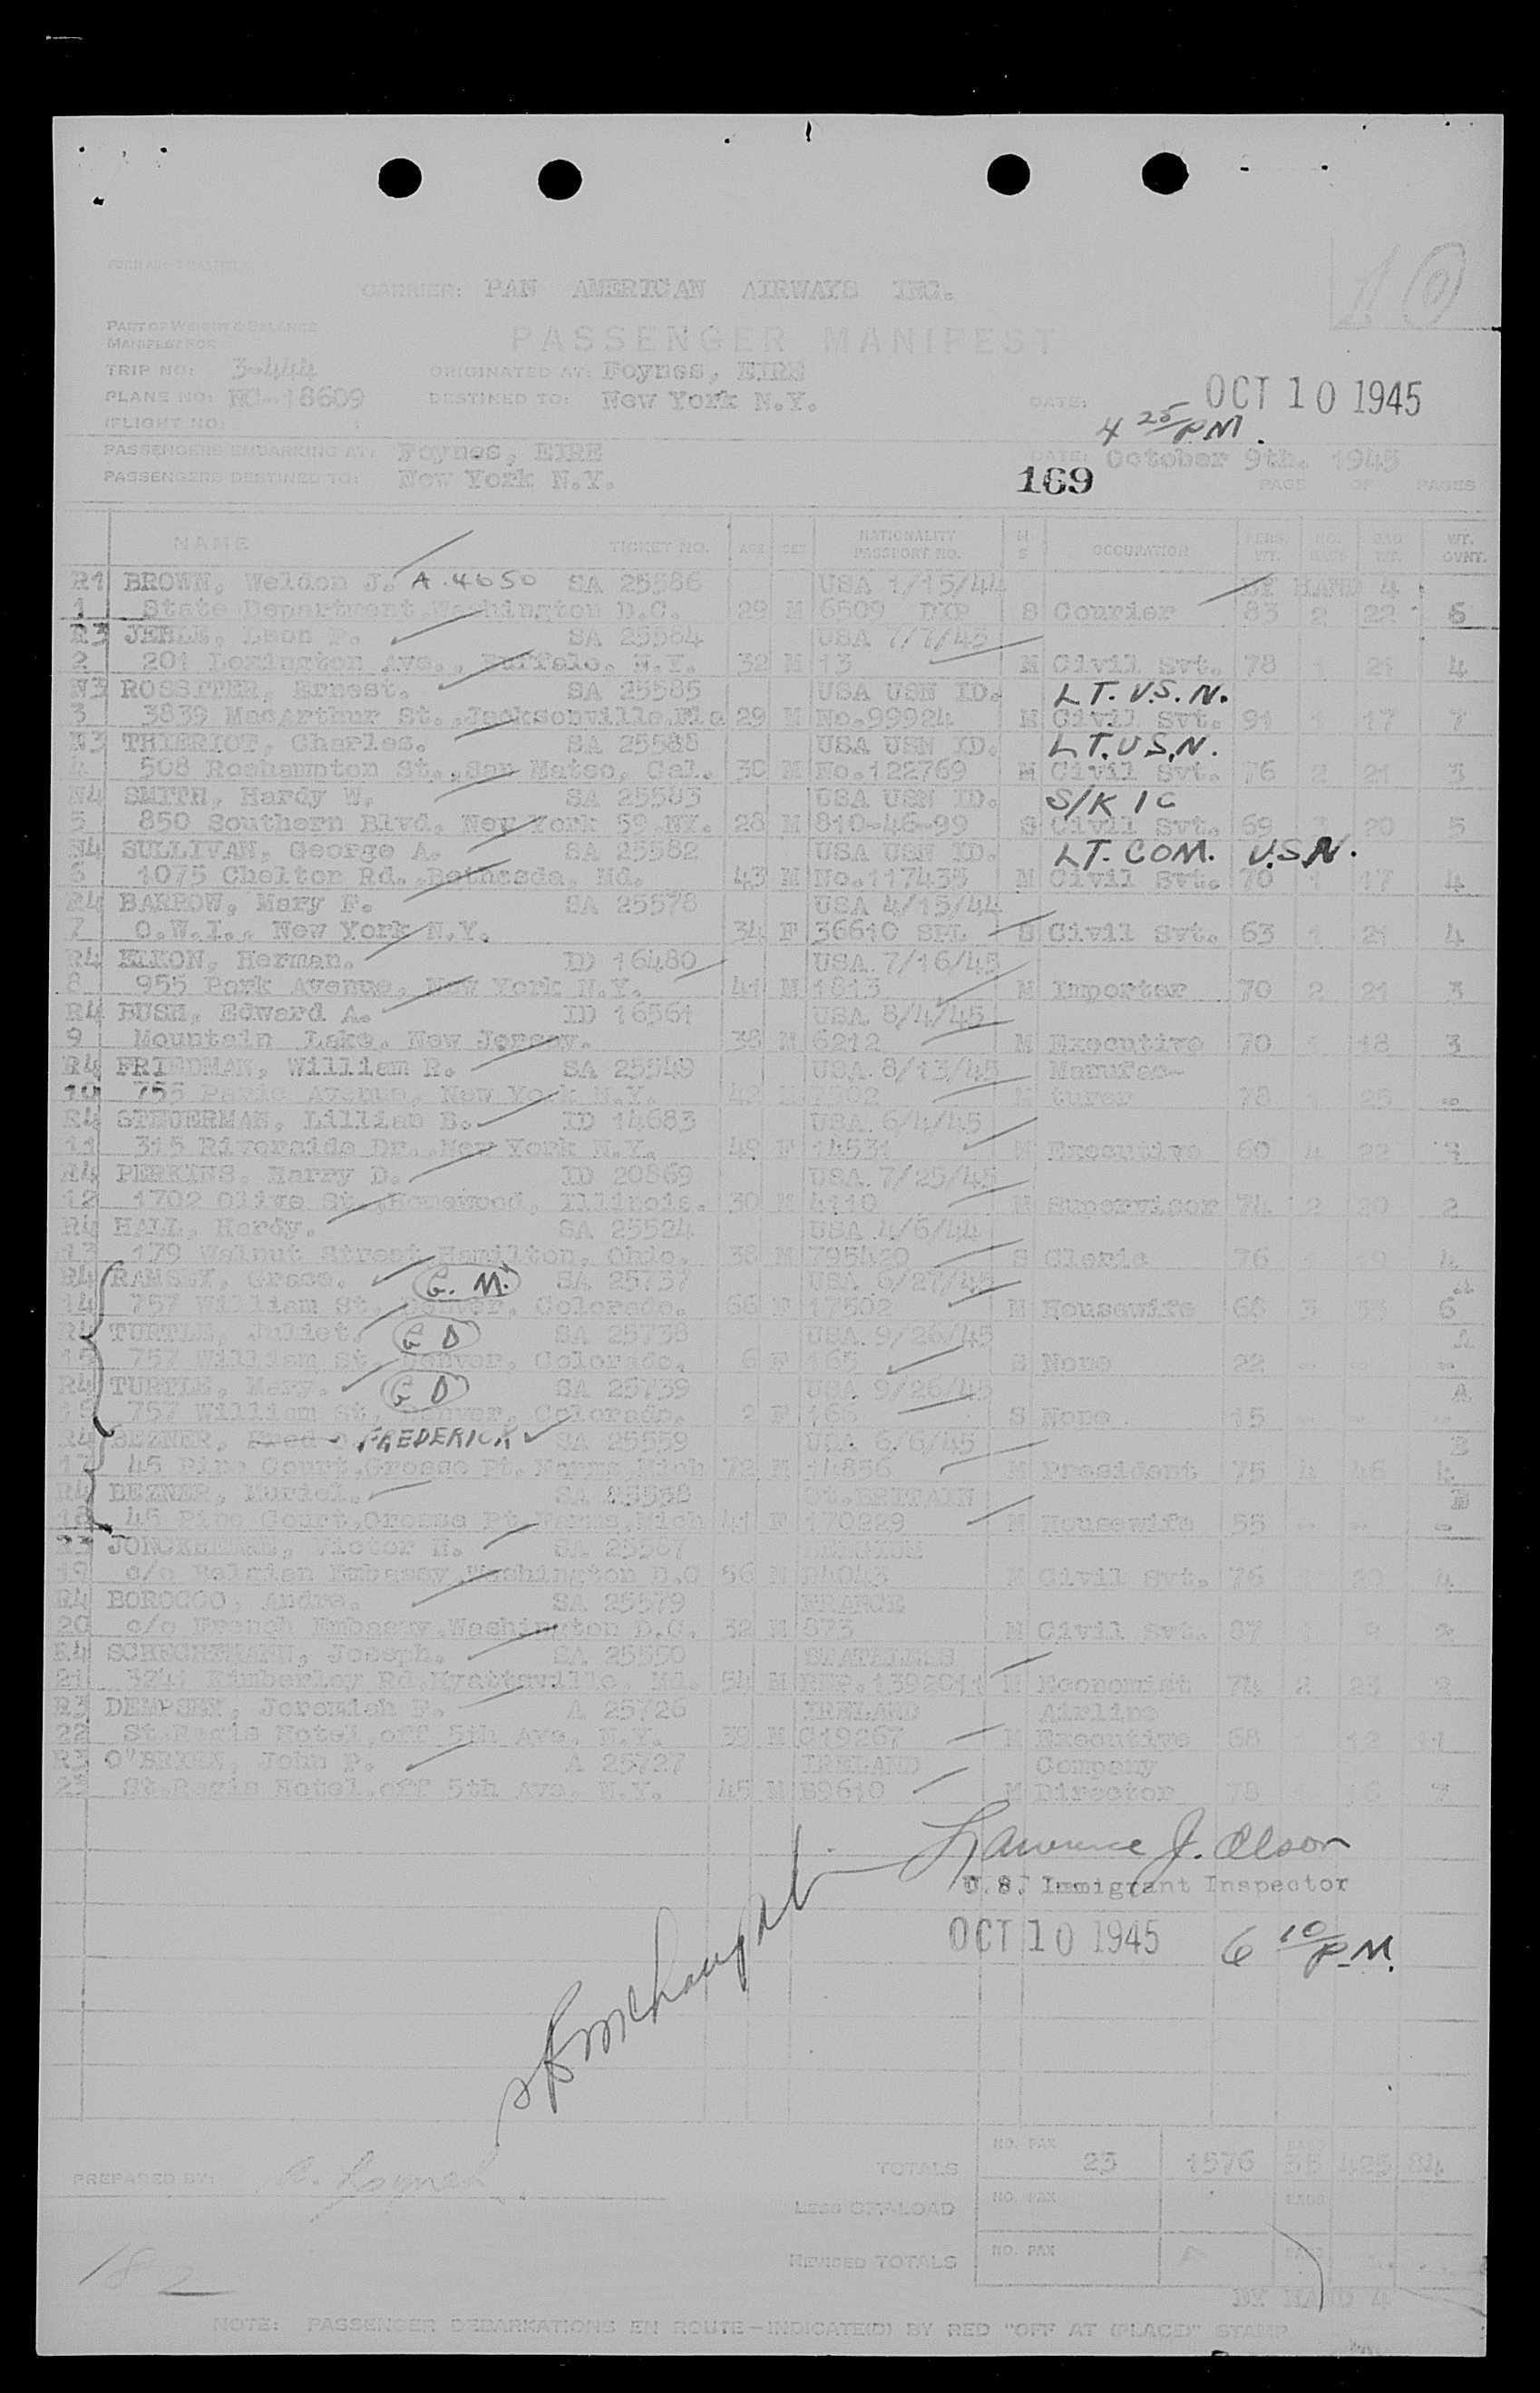 10
CARRIER: PAN AMERICAN AIRWAYS INC.
PART OF WEIGHT & BALANCE
MANIFEST FOR
PASSENGER MANIFEST
TRIP NO: 3-444 ORIGINATED AT: Foynes, EIRE
PLANE NO: NC.-18609 DESTINED TO: New York N.Y. DATE: OCT 10 1945
(FLIGHT NO: 4 25/PM.
PASSENGERS EMBARKING AT: Foynes, EIRE DATE: October 9th. 1945
PASSENGERS DESTINED TO: New York N.Y. 169 PAGE OF PAGES
NAME TICKET NO. AGE SEX NATIONALITY PASSPORT NO. M S OCCUPATION PERS. WT. NO. BAGS BAG WT. WT. OVNT.
R1 BROWN, Weldon J. A.4050 SA 25586 USA 1/15/44 BY HAND 4
1 State Department Washington D.C. 29 M 6609 DIP S Courier 83 2 22 6
R3 JEHLE, Leon F. SA 25584 USA 7/7/45
2 201 Lexington Ave., Buffalo. N.Y. 32 M 13 M Civil Svt. 78 1 21 4
N3 ROSSITER, Ernest. SA 25585 USA USN ID. LT. U.S.N.
3 3839 MacArthur St., Jacksonville.Fla 29 M No.99924 M Civil Svt. 91 1 17 7
N3 THIERIOT, Charles. SA 25588 USA USN ID. LT. U.S.N.
4 508 Roehampton St., San Mateo, Cal. 30 M No.122769 M Civil Svt. 76 2 21 3
N4 SMITH, Hardy W. SA 25583 USA USN ID. S/K 1C
5 850 Southern Blvd. New York 59.NY. 28 M 810-46-99 S Civil Svt. 69 3 20 5
N4 SULLIVAN, George A. SA 25582 USA USN ID. LT. COM. U.S.N.
6 1075 Chelter Rd. Bethesda, Md. 43 M No.117435 M Civil Svt. 70 1 17 4
R4 BARROW, Mary F. SA 25578 USA 4/15/44
7 O.W.I., New York N.Y. 34 F 36610 SPL S Civil Svt. 63 1 21 4
R4 ELKON, Herman. ID 16480 USA 7/16/45
8 955 Park Avenue, New York N.Y. 41 M 1813 M Importer 70 2 21 3
R4 BUSH, Edward A. ID 16561 USA 8/4/45
9 Mountain Lake. New Jersey. 38 M 6212 M Executive 70 1 18 3
R4 FRIEDMAN, William R. SA 25549 USA 8/13/45 Manufac-
10 755 Avenue, New York N.Y. 42 M M turer 78 1 25 -
R4 STEUERMAN, Lillian B. ID 14683 USA 6/4/45
11 315 Riverside Dr., New York N.Y. 49 F 14531 M Executive 60 4 22
R4 PERKINS, Harry D. ID 20869 USA 7/25/45
12 1702 Olive St., Homewood, Illinois. 30 M 4110 M Supervisor 74 2 20 2
R4 HALL, Hardy. SA 25524 USA 4/6/44
13 179 Walnut Street Hamilton, Ohio. 38 M 795420 S 76 1 19 4
R4 RAMSEY, Grace. G. M. SA 25737 USA 6/27/45
14 757 William St. Denver, Colorado. 66 F 17502 M Housewife 68 3 55 6
R4 TURTLE, Juliet. G D SA 25738 USA 9/26/45
15 757 William St. Denver, Colorado. 6 F 165 S None 22 - - -
R4 TURTLE, Mary. G D SA 25739 USA 9/26/45
16 757 William St. Denver, Colorado. 2 F 166 S None 15 - - -
R4 BEZNER, Fred FREDERICK SA 25559 USA 6/6/45
17 45 Pine Court, Grosse Pt. Farms, Mich 72 M 14856 M President 75 4 46 4
R4 BEZNER, Muriel. SA 25558 Gt.BRITAIN
18 45 Pine Court, Grosse Pt. Farms, Mich 41 F 170229 M Housewife 55 - - -
R3 Victor H. SA 25587 BELGIUM
19 c/o Belgian Embassy, Washington D.C 56 M M Civil Svt. 76 4
R4 BOROCCO, Andre. SA 25579 FRANCE
20 c/o French Embassy, Washington D.C. 32 M 873 M Civil Svt. 87
R4 Joseph. SA 25550 STATELESS
21 Kimberley Rd. Hyattsville, Md. 54 M M Economist 74 2 23 2
R3 DEMPSEY, Jeremiah F. A 25726 IRELAND Airline
22 St.Regis Hotel, off 5th Ave. N.Y. 39 M C19267 M Executive 68 12 11
R3 O'BRIEN, John P. A 25727 IRELAND Company
23 St.Regis Hotel, off 5th Ave. N.Y. 45 M B9610 M Director 78 1 16 7
Lawrence J. Olson
U.S. Immigrant Inspector
OCT 10 1945 6 10/P.M.
TOTALS NO. PAX 23 1576 BAGS 38 425 84
PREPARED BY: Lynch
LESS OFF-LOAD NO. PAX BAGS
REVISED TOTALS NO. PAX BAGS
182
BY HAND 4
NOTE: PASSENGER DEBARKATIONS EN ROUTE—INDICATE(D) BY RED "OFF AT (PLACE)" STAMP